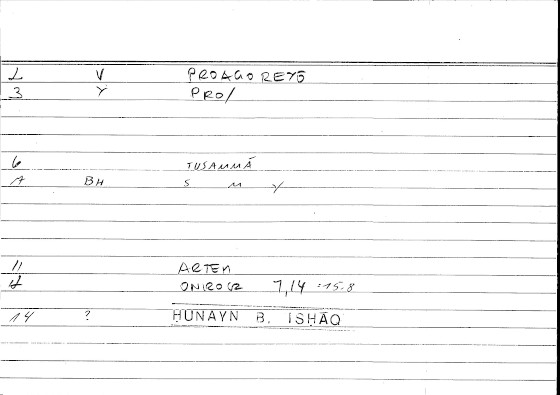 2 V PROAGOREYŌ
3 Y PRO/
6 TUSAMMĀ
A BH S M Y
11 ARTEM
2 ONIROCR 7,14 :15.8
14 ? ḤUNAYN B. ISḤĀQ